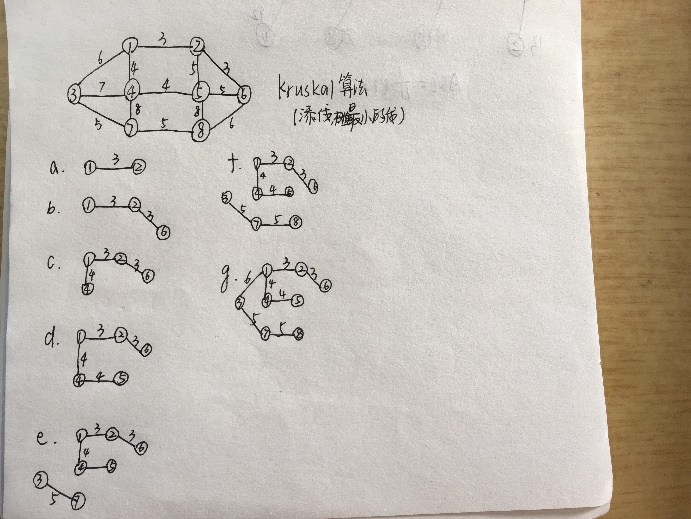 ① 3 ②
6 4 5 3
③ 7 ④ 4 ⑤ 5 ⑥
5 8 8 6
⑦ 5 ⑧
Kruskal 算法
a. ① 3 ②
b. ① 3 ② 3 ⑥
c. ① 3 ② 3 ⑥ 4 ④
d. ① 3 ② 3 ⑥ 4 ④ 4 ⑤
e. ① 3 ② 3 ⑥ 4 ④ ⑤
③ 5 ⑦
f. ① 3 ② 3 ⑥ 4 ④ 4
5 ⑦ 5 ⑧
g. 6 ① 3 ② 3 ⑥ 4 ④ 4 ⑤
③ 5 ⑦ 5 ⑧